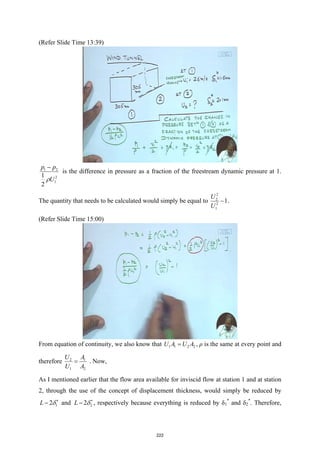 (Refer Slide Time 13:39)
WIND TUNNEL
AT ①
FREESTREAM
305
305m
①
②
AT ②
U₂ = ?
CALCULATE THE CHANGES IN
PRESSURE BETWEEN ① & ② AS A
FRACTION OF THE FREESTREAM
DYNAMIC PRESSURE AT 1.
p₁ − p₂ / ½ρU₁² is the difference in pressure as a fraction of the freestream dynamic pressure at 1.
The quantity that needs to be calculated would simply be equal to U₂²/U₁² − 1.
(Refer Slide Time 15:00)
From equation of continuity, we also know that U₁A₁ = U₂A₂, ρ is the same at every point and
therefore U₂/U₁ = A₁/A₂ . Now,
As I mentioned earlier that the flow area available for inviscid flow at station 1 and at station
2, through the use of the concept of displacement thickness, would simply be reduced by
L − 2δ₁* and L − 2δ₂*, respectively because everything is reduced by δ₁* and δ₂*. Therefore,
222